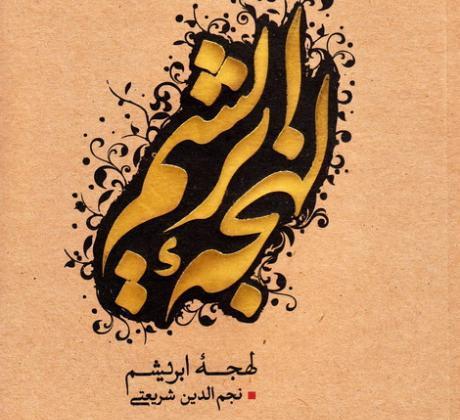 لهجهٔ ابریشم
لهجهٔ ابریشم
نجم‌الدین شریعتی